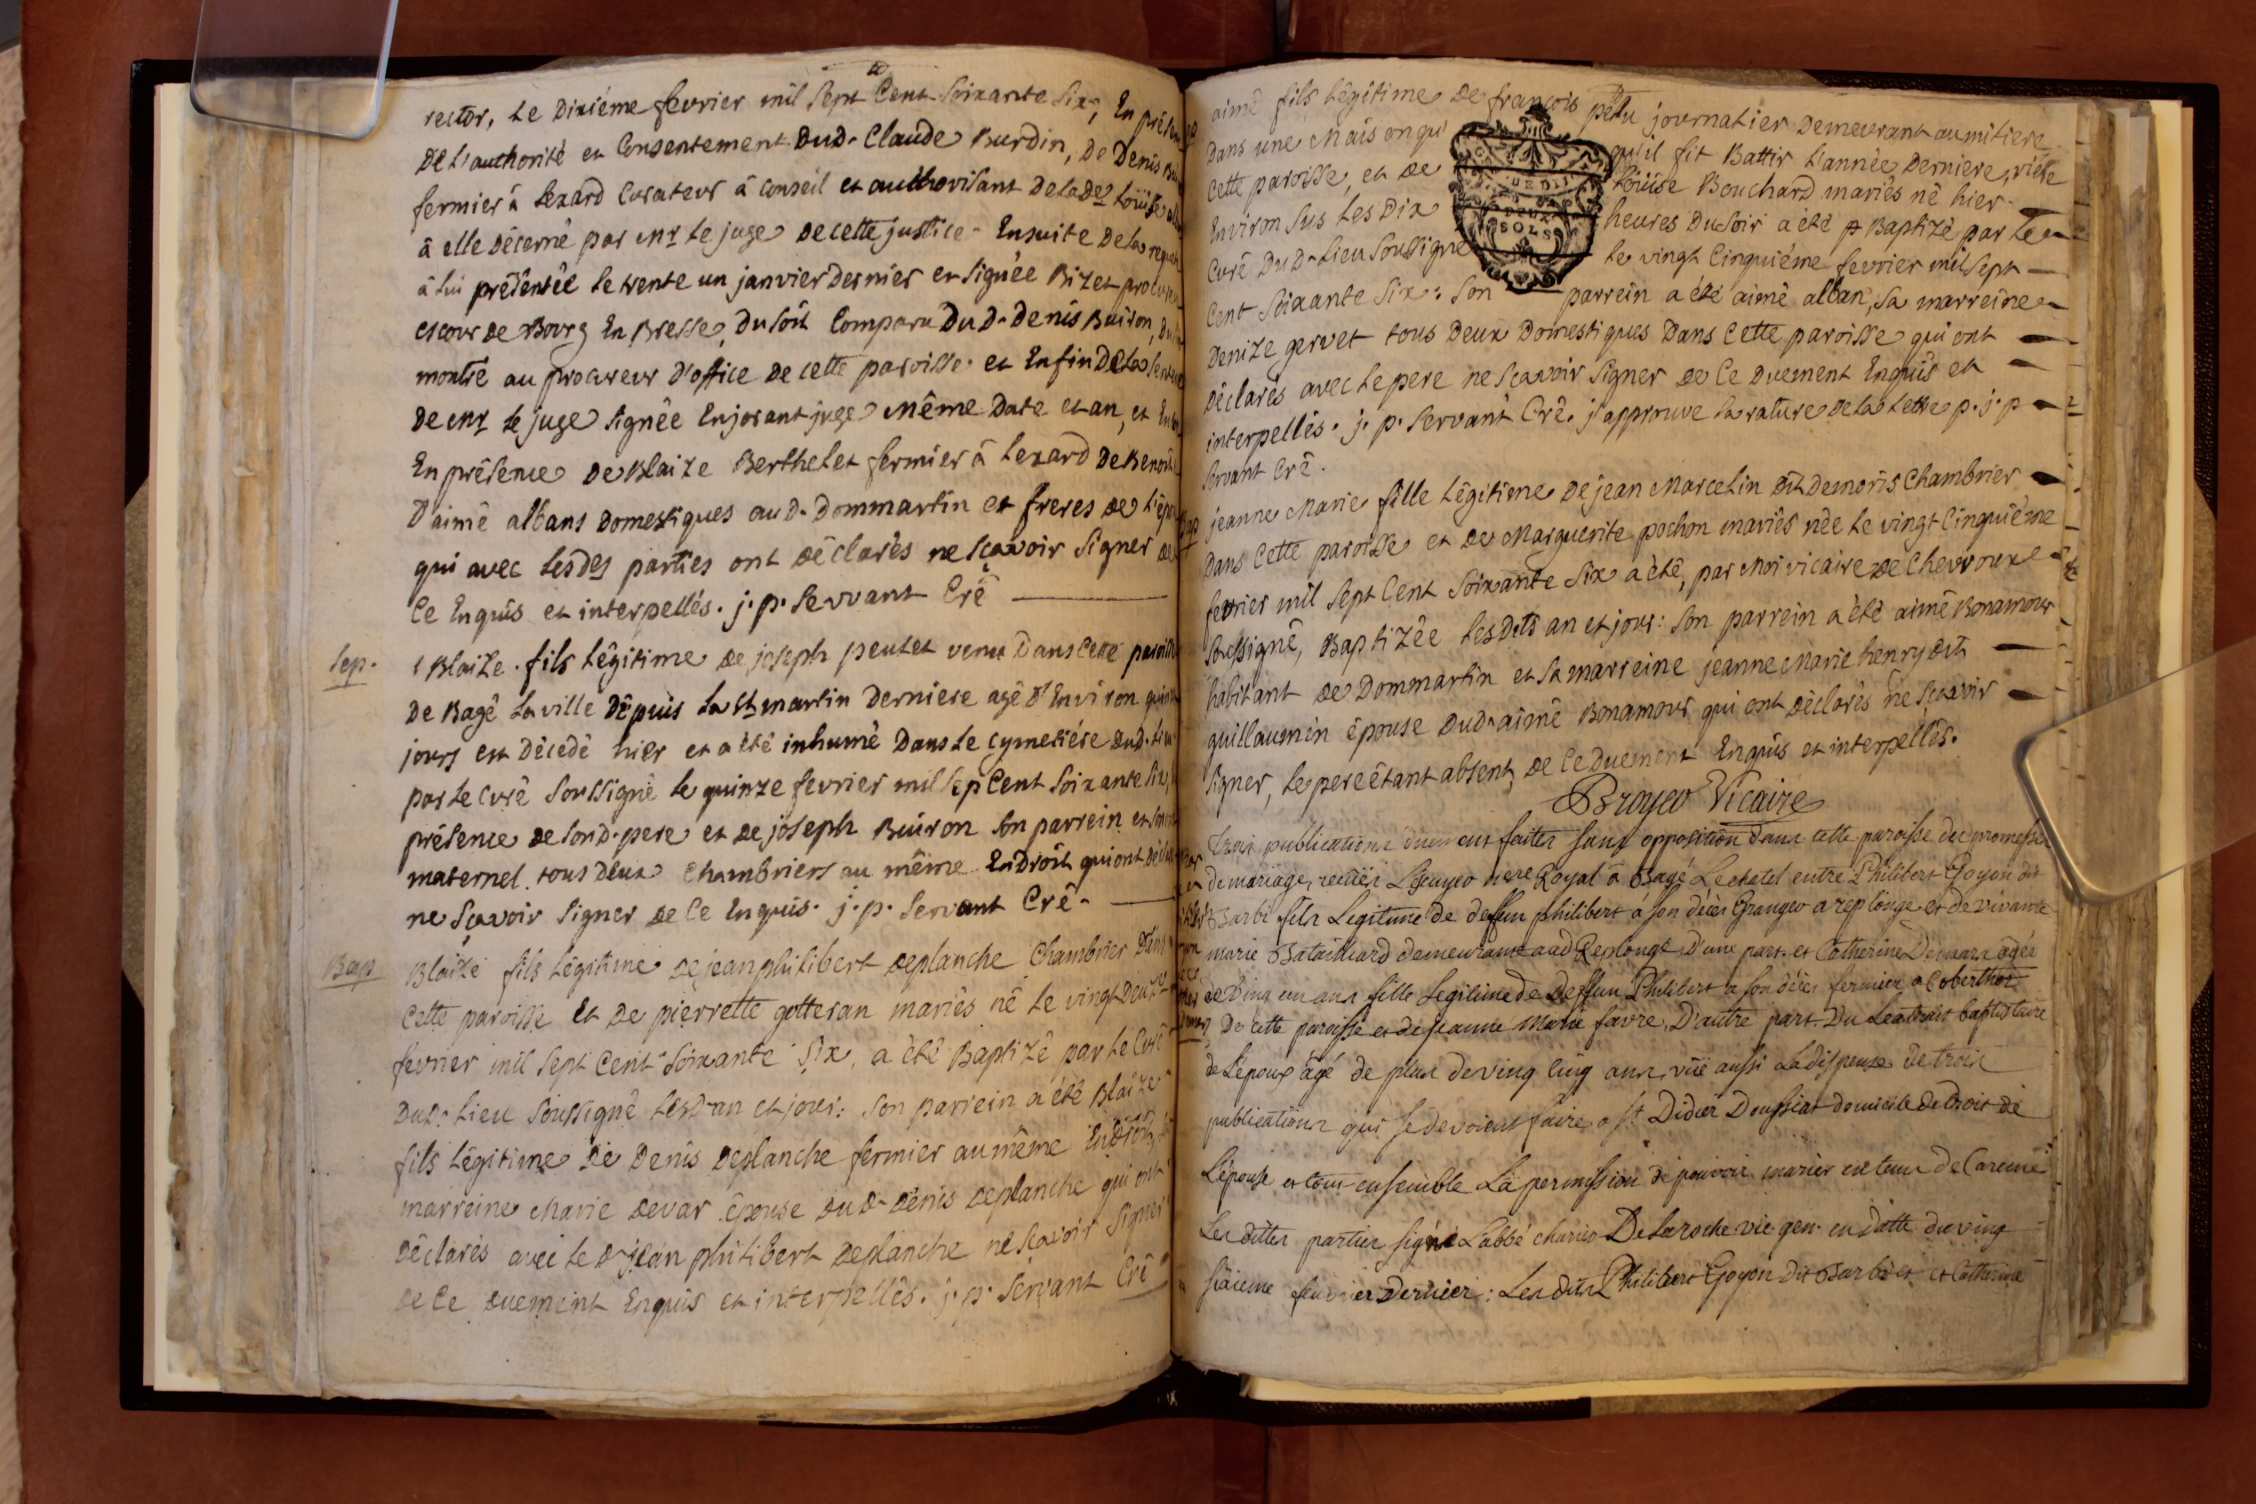 rector, Le Dixiéme fevrier mil Sept Cent Soixante Six; En présen
De L'authorité et Consentement Dud. Claude Burdin, De Denis
fermier à Lezard Curateur à conseil et authorisant De la de Loüise
à elle Décerné par Mr Le juge De cette justice. Ensuite De la
à Lui présentée Le trente un janvier Dernier et Signée Bizet
es cour De Bourg En Bresse, Du Soit Comparu Du D. Denis Buiron,
montré au procureur D'office De cette paroisse. et Enfin De la
De Mr Le juge Signée Enjorant juge Même Date et an, et
En présence De Blaize Berthelet fermier à Lezard De Benoit
D'aimé albans Domestiques au D. Dommartin et freres De
qui avec Lesdes parties ont Déclarés ne Sçavoir Signer De
Ce Enquis et interpellés. j. p. Servant Cré
Sep.
Blaize fils Légitime De joseph peutet venu Dans Cette paroisse
De Bagé La ville Dépuis La St martin Derniere agé D'Environ
jours est Décedé hier et a été inhumé Dans Le Cymetiére Dud. Lieu
par Le Curé Soussigné Le quinze fevrier mil Sep Cent Soixante Six,
présence De Sond. pere et De joseph Buiron Son parrein et
maternel tous Deux Chambriers au même Endroit qui ont
ne Sçavoir Signer De Ce Enquis. j. p. Servant Cré.
Bap
Blaize fils Légitime De jean philibert Deplanche Chambrier Dans
Cette paroisse Et De pierrette gotteran mariés né Le vingt Deuze
fevrier mil Sept Cent Soixante Six, a été Baptizé par Le Curé
Dud. Lieu Soussigné Lesd. an et jour: Son parrein a été Blaize
fils Légitime De Denis Deplanche fermier au même Endroit,
marreine Marie Devar épouse Du D. Denis Deplanche qui ont
Déclarés avec Le D. jean philibert Deplanche ne Sçavoir Signer
De Ce Duement Enquis et interpellés. j. p. Servant Cré
aimé fils Légitime De françois petu journalier Demeurant au mitiere
Dans une Maison qu'il fit Battir L'année Derniere, riére
Cette paroisse, et De Loüise Bouchard mariés né hier
Environ Sus Les Dix heures Du Soir a été p Baptizé par Le
Curé Du D. Lieu Soussigné Le vingt Cinquiéme fevrier mil Sept
DEUX
SOLS
Cent Soixante Six: Son parrein a été aimé alban, Sa marreine
Denize gervet tous Deux Domestiques Dans Cette paroisse qui ont
Déclarés avec Le pere ne Sçavoir Signer De Ce Duement Enquis et
interpellés. j. p. Servant Cré. j'approuve La rature De La Lettre p. j. p
Servant Cré.
jeanne Marie fille Légitime De jean Marcelin dit Demoris Chambrier
Dans Cette paroisse et De Marguerite pochon mariés née Le vingt Cinquiéme
fevrier mil Sept Cent Soixante Six a été, par Moi vicaire De Chevroux
Soussigné, Baptizée Les Dits an et jour: Son parrein a été aimé Bonamour
habitant De Dommartin et Sa marreine jeanne Marie henry dit
guillaumin épouse Dud. aimé Bonamour qui ont Déclarés ne Sçavoir
Signer, Le pere étant absent, De Ce Duement Enquis et interpellés.
Broyer Vicaire
Trois publications duement faites sans opposition dans cette paroisse des promesses
de mariage, receües Lescuyer nere Royal à Bagé Lechatel entre Philibert Goyon dit
Barbé fils Legitime de deffun philibert à son décès Granger a replonge et de vivante
marie Bataillard demeurante aud Replonge D'une part. et Catherine agée
de ving un ans fille Legitime de deffun Philibert a son décès fermier a Coberthod
De cette paroisse et de jeanne Marie favre, D'autre part. Du Lextrait baptistaire
de L'époux agé de plus de ving cinq ans, vüe aussi La dispense de trois
publications qui se devoient faire a St Didier Doussiat domicile de droit de
L'épouse et tout ensemble La permission de pouvoir marier en tems de Careme
Les dittes parties signé L'abbé Delaroche vic gen. en datte du ving
sixieme fevrier Dernier: Les dits Philibert Goyon Dit Barbé et Catherine